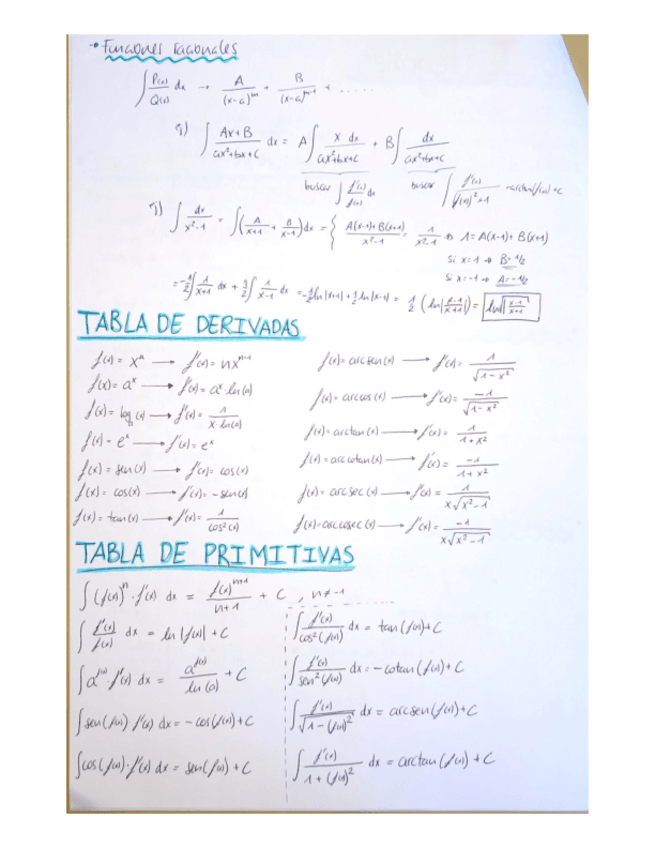 • Funciones racionales
∫ P(x)/Q(x) dx → A/(x-a)^m + B/(x-a)^(m-1) + .....
ej) ∫ (Ax+B)/(ax²+bx+c) dx = A∫ x dx/(ax²+bx+c) + B∫ dx/(ax²+bx+c)
buscar ∫ f'(x)/f(x) dx buscar ∫ f'(x)/(f(x)²+1) = arctan f(x)+C
ej) ∫ dx/(x²-1) = ∫ (A/(x+1) + B/(x-1)) dx = { (A(x-1)+B(x+1))/(x²-1) = 1/(x²-1) ⇒ 1=A(x-1)+B(x+1)
Si x=1 → B=1/2
Si x=-1 → A=-1/2
= -1/2 ∫ 1/(x+1) dx + 1/2 ∫ 1/(x-1) dx = -1/2 ln|x+1| + 1/2 ln|x-1| = 1/2 (ln|(x-1)/(x+1)|) = ln√((x-1)/(x+1))
TABLA DE DERIVADAS
f(x) = xⁿ → f'(x) = nxⁿ⁻¹
f(x) = aˣ → f'(x) = aˣ·ln(a)
f(x) = log (x) → f'(x) = 1/(x·ln(a))
f(x) = eˣ → f'(x) = eˣ
f(x) = sen(x) → f'(x) = cos(x)
f(x) = cos(x) → f'(x) = -sen(x)
f(x) = tan(x) → f'(x) = 1/cos²(x)
f(x) = arcsen(x) → f'(x) = 1/√(1-x²)
f(x) = arccos(x) → f'(x) = -1/√(1-x²)
f(x) = arctan(x) → f'(x) = 1/(1+x²)
f(x) = arccotan(x) → f'(x) = -1/(1+x²)
f(x) = arcsec(x) → f'(x) = 1/(x√(x²-1))
f(x) = arccosec(x) → f'(x) = -1/(x√(x²-1))
TABLA DE PRIMITIVAS
∫ (f(x))ⁿ·f'(x) dx = f(x)ⁿ⁺¹/(n+1) + C , n≠-1
∫ f'(x)/f(x) dx = ln|f(x)| + C
∫ a^f(x)·f'(x) dx = a^f(x)/ln(a) + C
∫ sen(f(x))·f'(x) dx = -cos(f(x)) + C
∫ cos(f(x))·f'(x) dx = sen(f(x)) + C
∫ f'(x)/cos²(f(x)) dx = tan(f(x)) + C
∫ f'(x)/sen²(f(x)) dx = -cotan(f(x)) + C
∫ f'(x)/√(1-(f(x))²) dx = arcsen(f(x)) + C
∫ f'(x)/(1+(f(x))²) dx = arctan(f(x)) + C